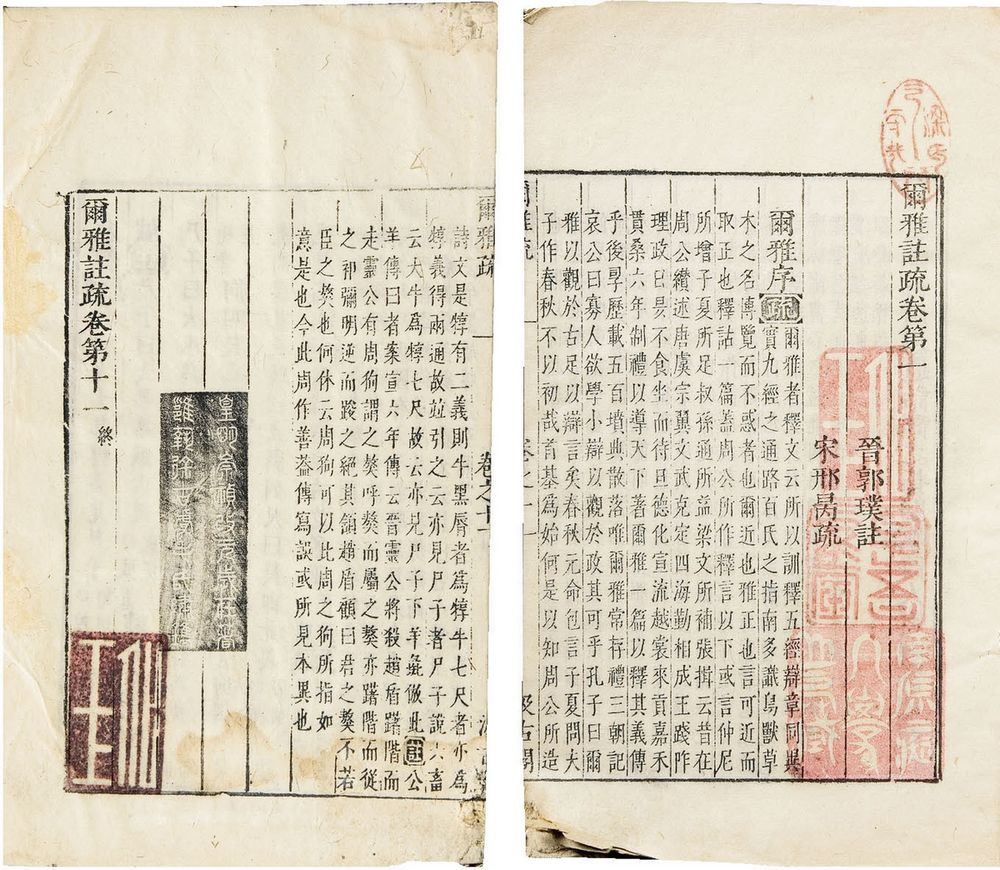 爾雅註疏卷第一
晉郭璞註
宋邢昺疏
爾雅序 疏 爾雅者釋文云所以訓釋五經辯章同異
實九經之通路百氏之指南多識鳥獸草
木之名博覽而不惑者也爾近也雅正也言可近而
取正也釋詁一篇蓋周公所作釋言以下或言仲尼
所增子夏所足叔孫通所益梁文所補張揖云昔在
周公纘述唐虞宗翼文武克定四海勤相成王踐阼
理政日昃不食坐而待旦德化宣流越裳來貢嘉禾
貫桑六年制禮以導天下著爾雅一篇以釋其義傳
乎後孠歷載五百墳典散落唯爾雅常存禮三朝記
哀公曰寡人欲學小辯以觀於政其可乎孔子曰爾
雅以觀於古足以辯言矣春秋元命包言子夏問夫
子作春秋不以初哉首基為始何是以知周公所造
爾雅疏 卷之一 一 汲古閣
爾雅疏 卷之十一
詩文是犉有二義則牛黑脣者為犉牛七尺者亦為
犉義得兩通故並引之云亦見尸子者尸子說六畜
云大牛為犉七尺故云亦見尸子下羊彘倣此 疏 公
羊傳曰者案宣六年傳云晉靈公將殺趙盾躇階而
走靈公有周狗謂之獒呼獒而屬之獒亦躇階而從
之祁彌明逆而踆之絕其頷趙盾顧曰君之獒不若
臣之獒也何休云周狗可以比周之狗所指如
意是也今此周作害蓋傳寫誤或所見本異也
爾雅註疏卷第十一 終